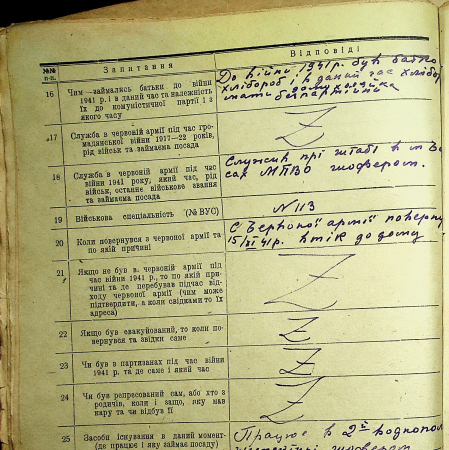 №№
п-н.
Запитання
Відповіді
16
Чим займались батьки до війни
1941 р. і в даний час та належність
їх до комуністичної партії і з
якого часу
До війни 1941 р. був батько
хлібороб і в даний час хлібор
мати домохозяйка
безпартійна
17
Служба в червоній армії під час гро-
мадянської війни 1917—22 років,
рід військ та займаєма посада
Z
18
Служба в червоній армії під час
війни 1941 року, який час, рід
військ, останнє військове звання
та займаєма посада
Служив прі штабі в
МПВО шофером.
19
Військова спеціальність (№ ВУС)
N 113
20
Коли повернувся з червоної армії та
по якій причині
С Червоної армії поверну
15/XI 41 р. втік до дому
21
Якщо не був в червоній армії під
час війни 1941 р., то по якій при-
чині та де перебував підчас від-
ходу червоної армії (чим може
підтвердити, а коли свідками то їх
адреса)
Z
22
Якщо був евакуйований, то коли по-
вернувся та звідки саме
Z
23
Чи був в партизанах під час війни
1941 р. та де саме і який час
Z
24
Чи був репресований сам, або хто з
родичів, коли і защо, яку мав
кару та чи відбув її
Z
25
Засоби існування в даний момент
(де працює і яку займає посаду)
Працює в 2й
шофером